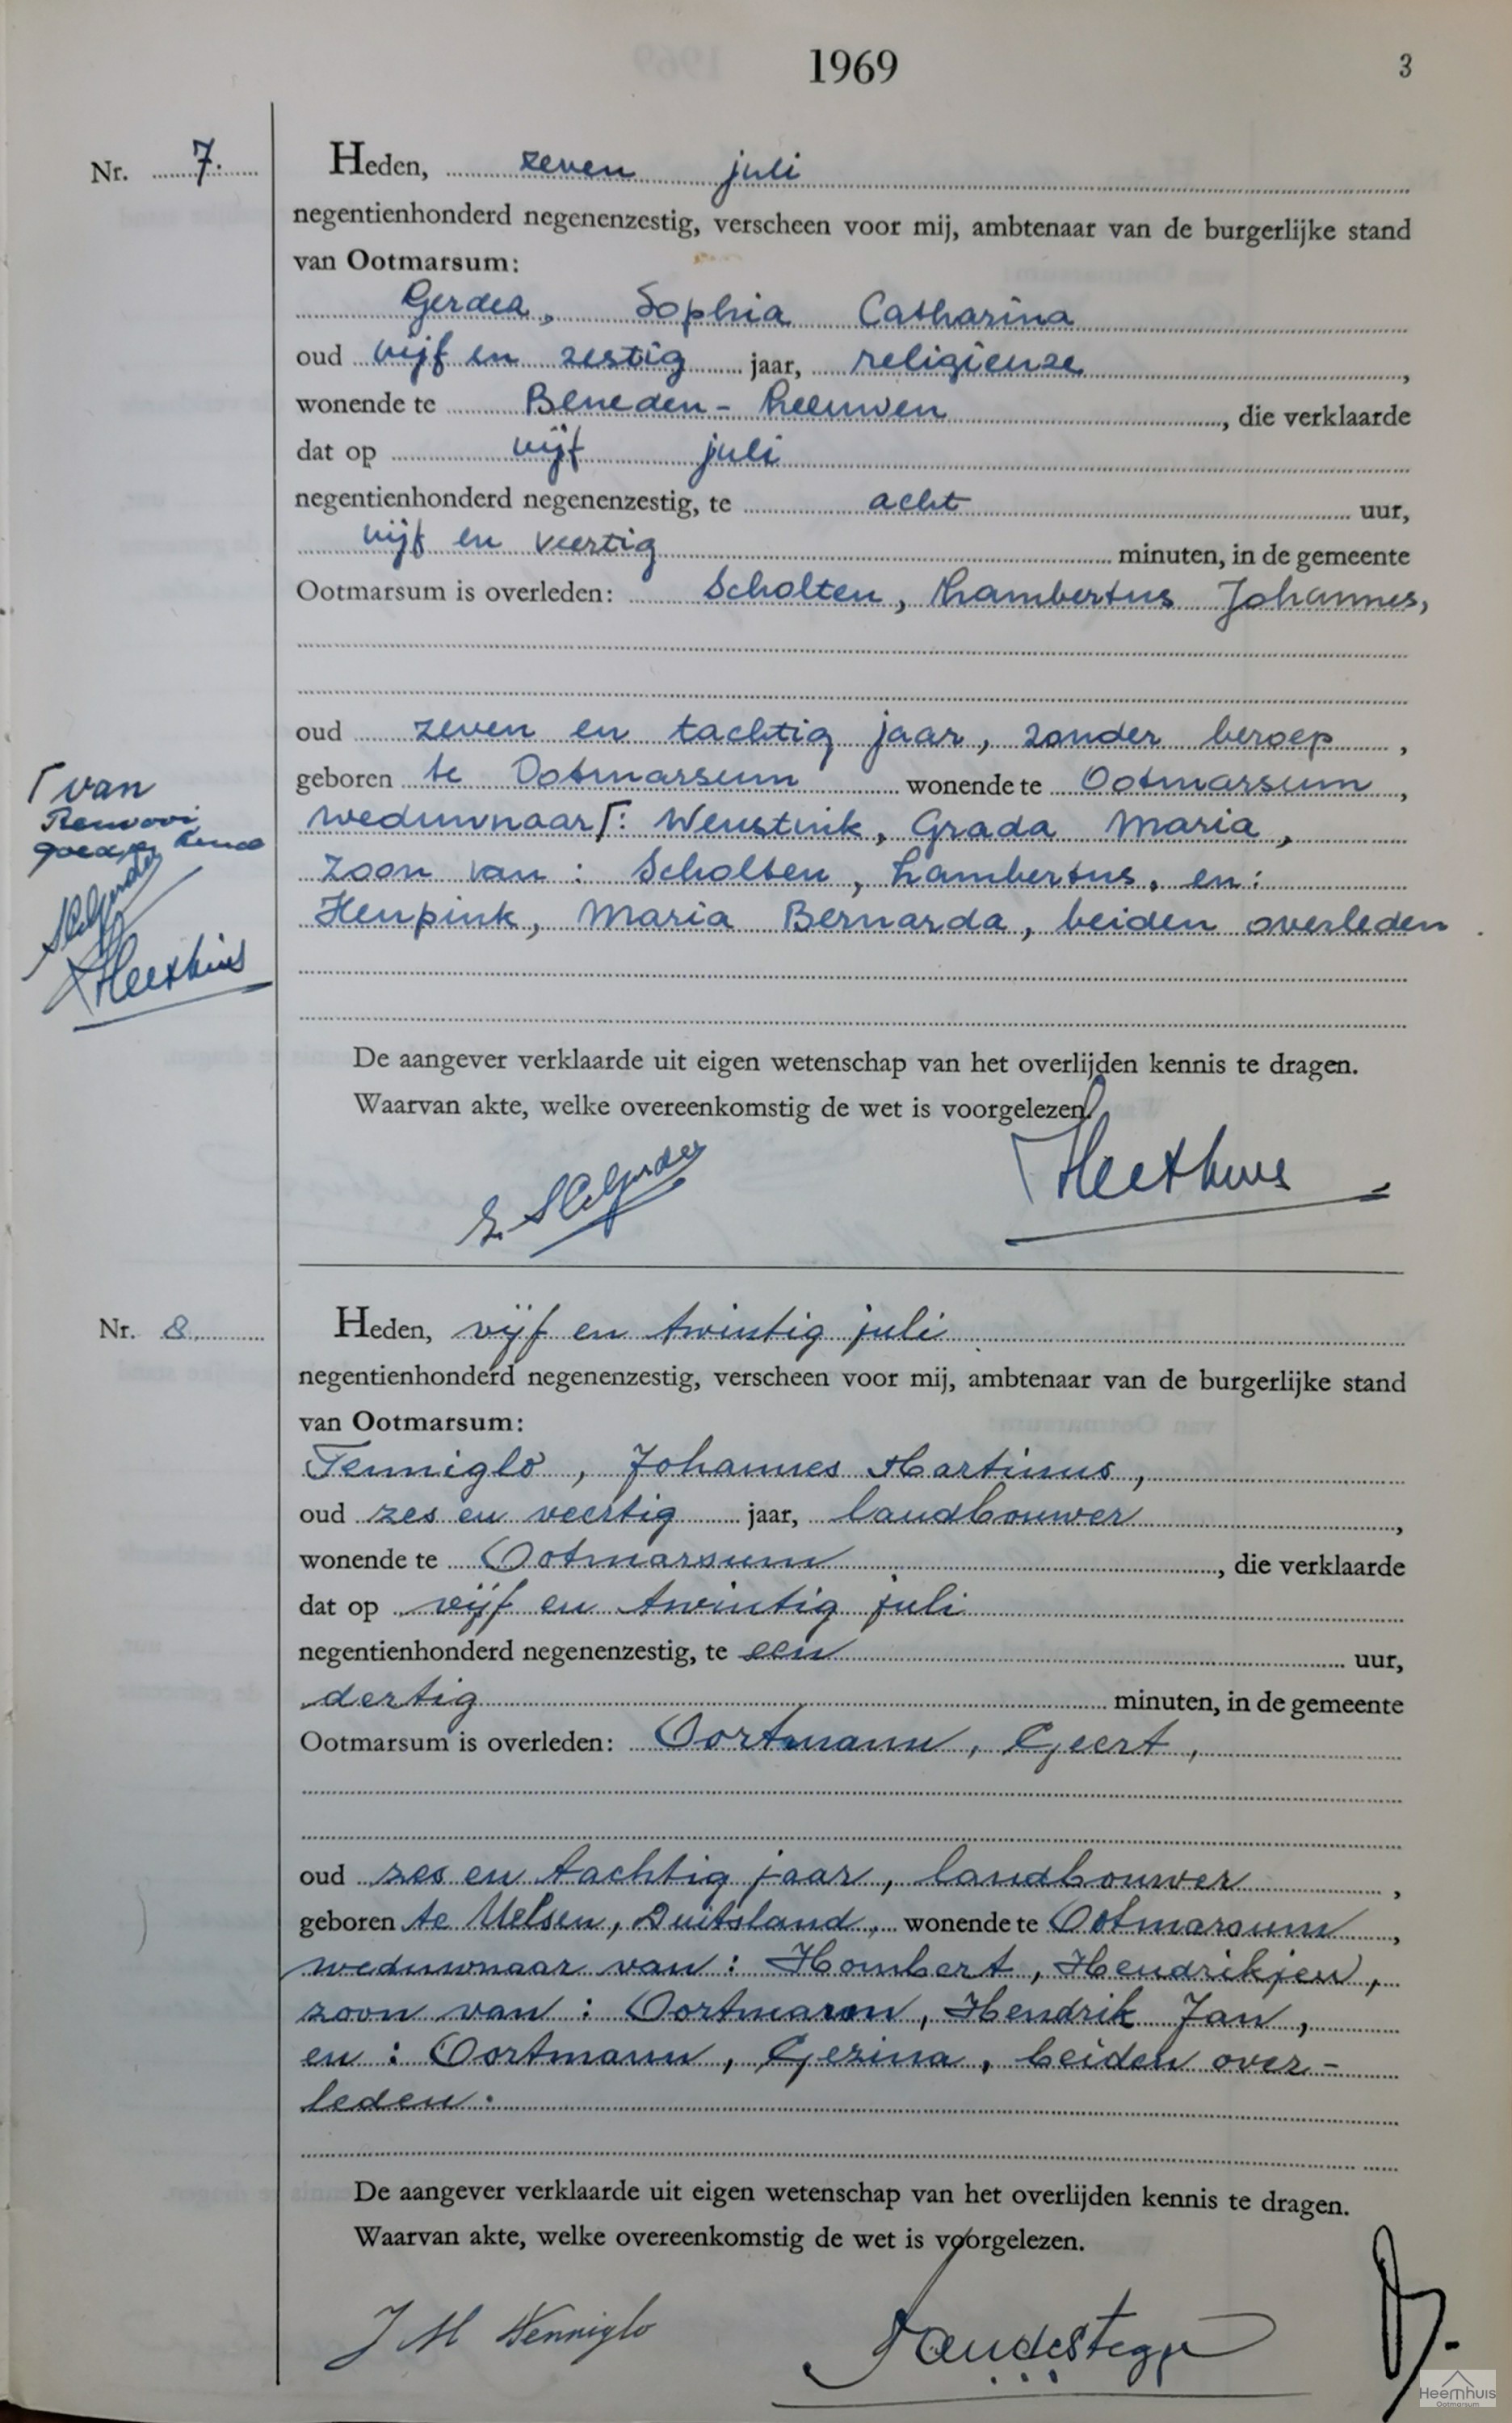 1969
3
Nr. 7.
Heden, zeven juli
negentienhonderd negenenzestig, verscheen voor mij, ambtenaar van de burgerlijke stand
van Ootmarsum:
Gerdes, Sophia Catharina
oud vijf en zestig jaar, religieuze,
wonende te Beneden-Leeuwen, die verklaarde
dat op vijf juli
negentienhonderd negenenzestig, te acht uur,
vijf en veertig minuten, in de gemeente
Ootmarsum is overleden: Scholten, Lambertus Johannes,
oud zeven en tachtig jaar, zonder beroep,
geboren te Ootmarsum wonende te Ootmarsum,
weduwnaar ⌈: Weustink, Grada Maria,
zoon van: Scholten, Lambertus, en:
Heupink, Maria Bernarda, beiden overleden.
⌈ van
Renvooi
De aangever verklaarde uit eigen wetenschap van het overlijden kennis te dragen.
Waarvan akte, welke overeenkomstig de wet is voorgelezen.
Nr. 8.
Heden, vijf en twintig juli
negentienhonderd negenenzestig, verscheen voor mij, ambtenaar van de burgerlijke stand
van Ootmarsum:
Tenniglo, Johannes Martinus,
oud zes en veertig jaar, landbouwer,
wonende te Ootmarsum, die verklaarde
dat op vijf en twintig juli
negentienhonderd negenenzestig, te een uur,
dertig minuten, in de gemeente
Ootmarsum is overleden: Oortmann, Geert,
oud zes en tachtig jaar, landbouwer,
geboren te Uelsen, Duitsland, wonende te Ootmarsum,
weduwnaar van: Hombert, Hendrikjen,
zoon van: Oortmann, Hendrik Jan,
en: Oortmann, Gezina, beiden over-
leden.
De aangever verklaarde uit eigen wetenschap van het overlijden kennis te dragen.
Waarvan akte, welke overeenkomstig de wet is voorgelezen.
J M Tenniglo
Heemhuis
Ootmarsum